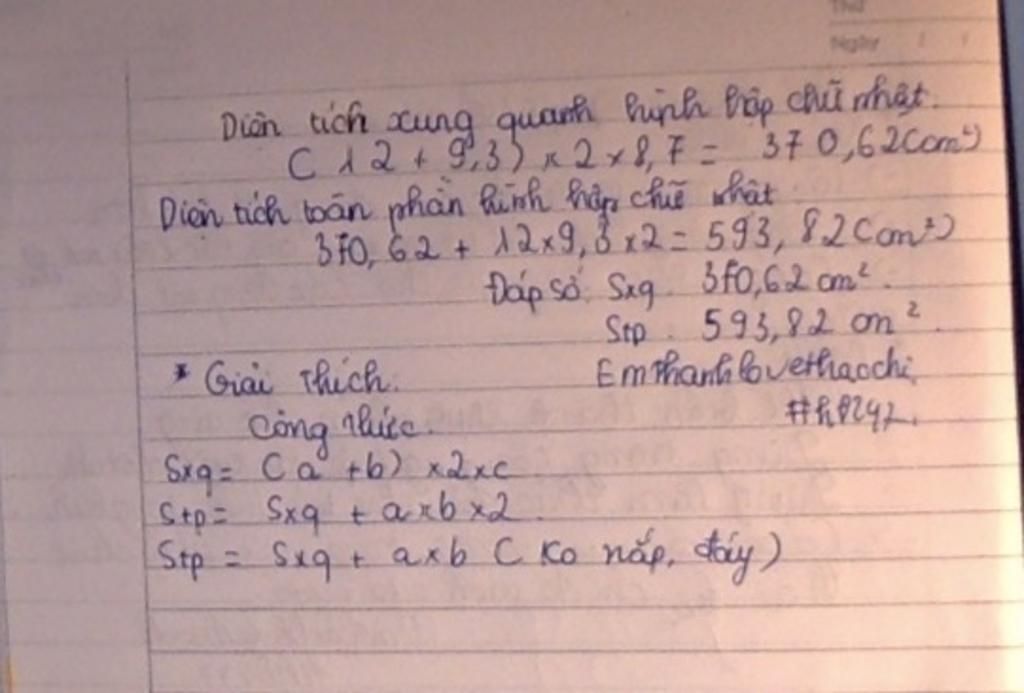 Thứ
Ngày / /
Diện tích xung quanh hình hộp chữ nhật.
(12 + 9,3) x 2 x 8,7 = 370,62 (cm²)
Diện tích toàn phần hình hộp chữ nhật
370,62 + 12 x 9,3 x 2 = 593,82 (cm²)
Đáp số: Sxq 370,62 cm².
Stp 593,82 cm².
* Giải thích.
Emthanhlovethaochi
Công thức.
Sxq = (a + b) x 2 x c
Stp = Sxq + a x b x 2.
Stp = Sxq + a x b (ko nắp, đáy)